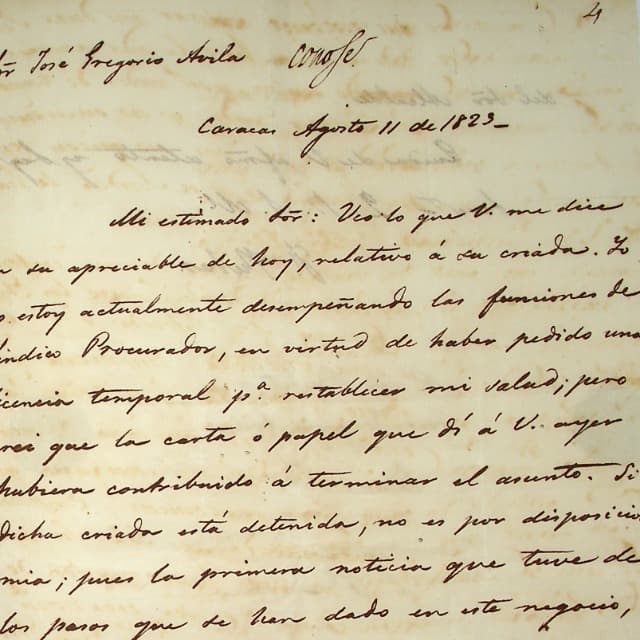 4
Sõr José Gregorio Avila
Caracas Agosto 11 de 1823_
Mi estimado Sõr: Veo lo que V. me dice
su apreciable de hoy, relativo á su criada. Yo
estoy actualmente desempeñando las funciones de
índico Procurador, en virtud de haber pedido una
licencia temporal pª restablecer mi salud; pero
rei que la carta ó papel que dí á V. ayer
hubiera contribuido á terminar el asunto. Si
dicha criada está detenida, no es por disposicio
mia; pues la primera noticia que tuve de
los pasos que se han dado en este negocio,